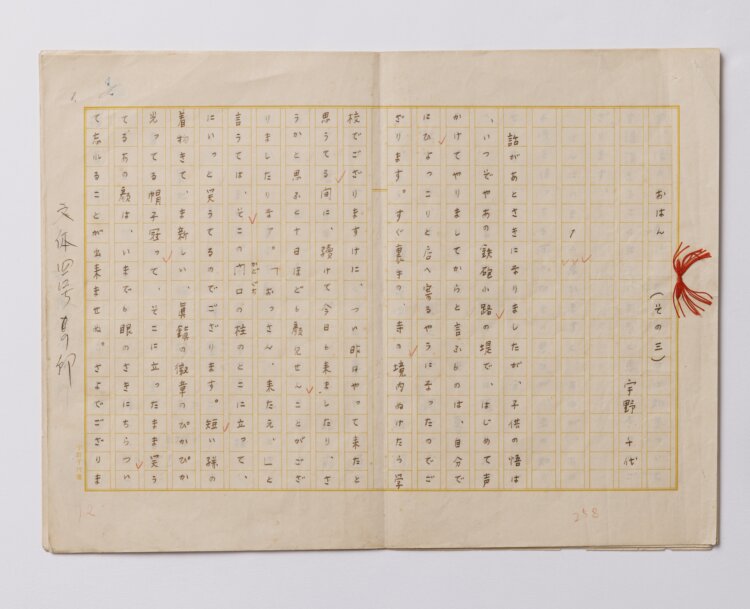 おはん　（その三）
宇野千代
1
話があとさきになりましたが、子供の悟は
、いつぞやあの鉄砲小路の堤で、はじめて声
かけてやりましてからと言ふものは、自分で
にひよつこりと店へ寄るやうになつたのでご
ざります。すぐ裏手の、寺の境内ぬけたら学
校でござりますけに、つい昨日やつて来たと
思うてる間に、續けて今日も来ましたり、さ
うかと思ふと十日ほども顔見せんことがござ
りましたりなア。「おつさん、来たえ、」と
言うては、そこの門口の柱のとこに立つて、
かどぐち
にいつと笑うてるのでござります。短い絣の
着物きて、ま新しい、眞鍮の徽章のぴかぴか
光つてる帽子冠つて、そこに立つたまま笑う
てるあの顔は、いまでも眼のさきにちらつい
て忘れることが出来ませぬ。さよでござりま
文体四号
258
12